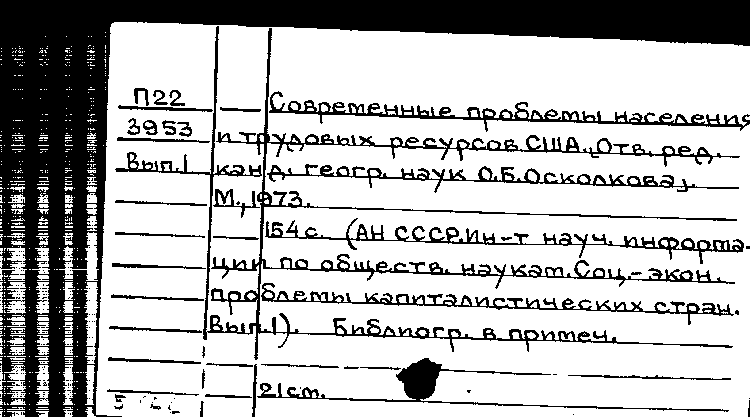 П22
3953
Вып.1
Современные проблемы населения
и трудовых ресурсов США. [Отв. ред.
канд. геогр. наук О.Б.Осколкова].
М., 1973.
154 с. (АН СССР.Ин-т науч. информа-
ции по обществ. наукам.Соц.-экон.
проблемы капиталистических стран.
Вып.1). Библиогр. в примеч.
21 см.